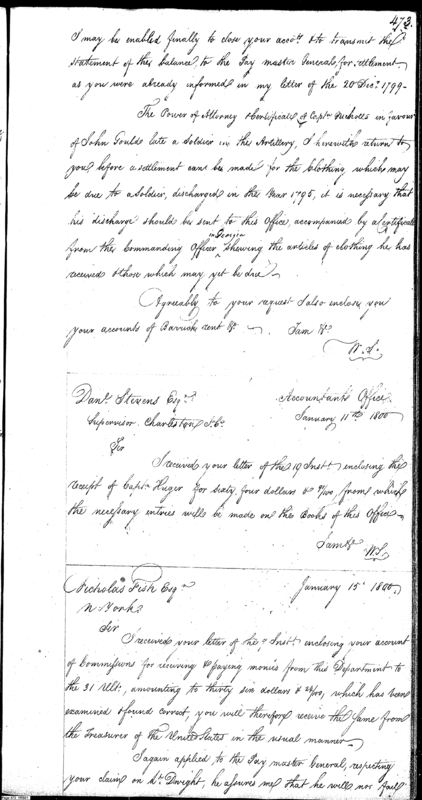 473.
I may be enabled finally to close your accots. & to transmit the
statement of the balance, to the Pay master General for settlement
as you were already informed in my letter of the 20 Decr. 1799-
The Power of Attorney & Certificate of Captn. Nicholls in favour
of John Gould late a Soldier in the Artillery, I herewith return to
you before a settlement can be made for the Clothing, which may
be due to a Soldier, discharged in the Year 1795, it is necessary that
his discharge should be sent to this Office, accompanied by a certificate
from the Commanding Officer in Georgia shewing the articles of clothing he has
received & those which may yet be due.
Agreeably to your request I also inclose you
your accounts of Barrack rent &c. I am &c.
W. S.
Danl. Stevens Esqr. Accountants Office
Supervisor. Charleston S. Ca. January 11th 1800
Sir
I received your letter of the 19 Inst. enclosing the
receipt of Captn. Huger for sixty four dollars & /100, from which
the necessary entries will be made on the Books of this Office
I am &c. W. S.
Nicholas Fish Esqr. January 15. 1800.
N York
Sir
I received your letter of the 9 Inst. enclosing your account
of Commissions for receiving & paying monies from this Department to
the 31 Ulto. amounting to thirty six dollars & /100, which has been
examined & found correct, you will therefore receive the same from
the Treasurer of the United States in the usual manner
I again applied to the Pay master General, respecting
your claim on Lt. Dwight, he assures me that he will not fail